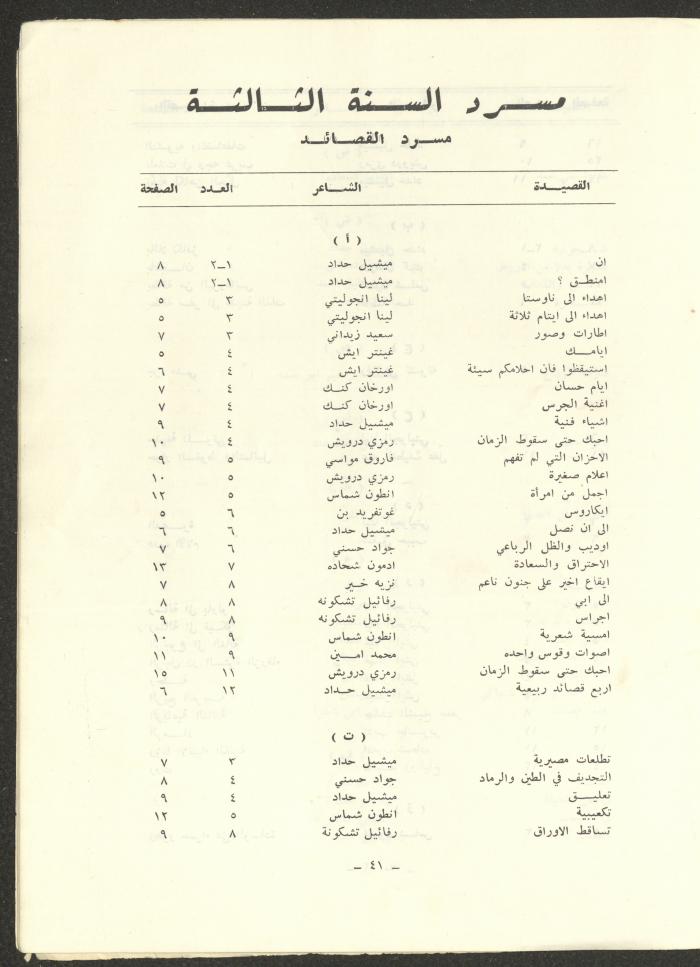 مسرد السنة الثالثة
مسرد القصائد
القصيدة الشاعر العدد الصفحة
( أ )
ان ميشيل حداد ١-٢ ٨
امنطق ؟ ميشيل حداد ١-٢ ٨
اهداء الى ناوستا لينا انجوليتي ٣ ٥
اهداء الى ايتام ثلاثة لينا انجوليتي ٣ ٥
اطارات وصور سعيد زيداني ٣ ٧
ايامك غينتر ايش ٤ ٥
استيقظوا فان احلامكم سيئة غينتر ايش ٤ ٦
ايام حسان اورخان كنك ٤ ٧
اغنية الجرس اورخان كنك ٤ ٧
اشياء فنية ميشيل حداد ٤ ٩
احبك حتى سقوط الزمان رمزي درويش ٤ ١٠
الاحزان التي لم تفهم فاروق مواسي ٥ ٩
اعلام صغيرة رمزي درويش ٥ ١٠
اجمل من امرأة انطون شماس ٥ ١٢
ايكاروس غوتفريد بن ٦ ٥
الى ان نصل ميشيل حداد ٦ ٦
اوديب والظل الرباعي جواد حسني ٦ ٧
الاحتراق والسعادة ادمون شحاده ٧ ١٣
ايقاع اخير على جنون ناعم نزيه خير ٨ ٧
الى ابي رفائيل تشكونه ٨ ٨
اجراس رفائيل تشكونه ٨ ٩
امسية شعرية انطون شماس ٩ ١٠
اصوات وقوس واحده محمد امين ٩ ١١
احبك حتى سقوط الزمان رمزي درويش ١١ ١٥
اربع قصائد ربيعية ميشيل حداد ١٢ ٦
( ت )
تطلعات مصيرية ميشيل حداد ٣ ٧
التجديف في الطين والرماد جواد حسني ٤ ٨
تعليق ميشيل حداد ٤ ٩
تكعيبية انطون شماس ٥ ١٢
تساقط الاوراق رفائيل تشكونة ٨ ٩
- ٤١ -